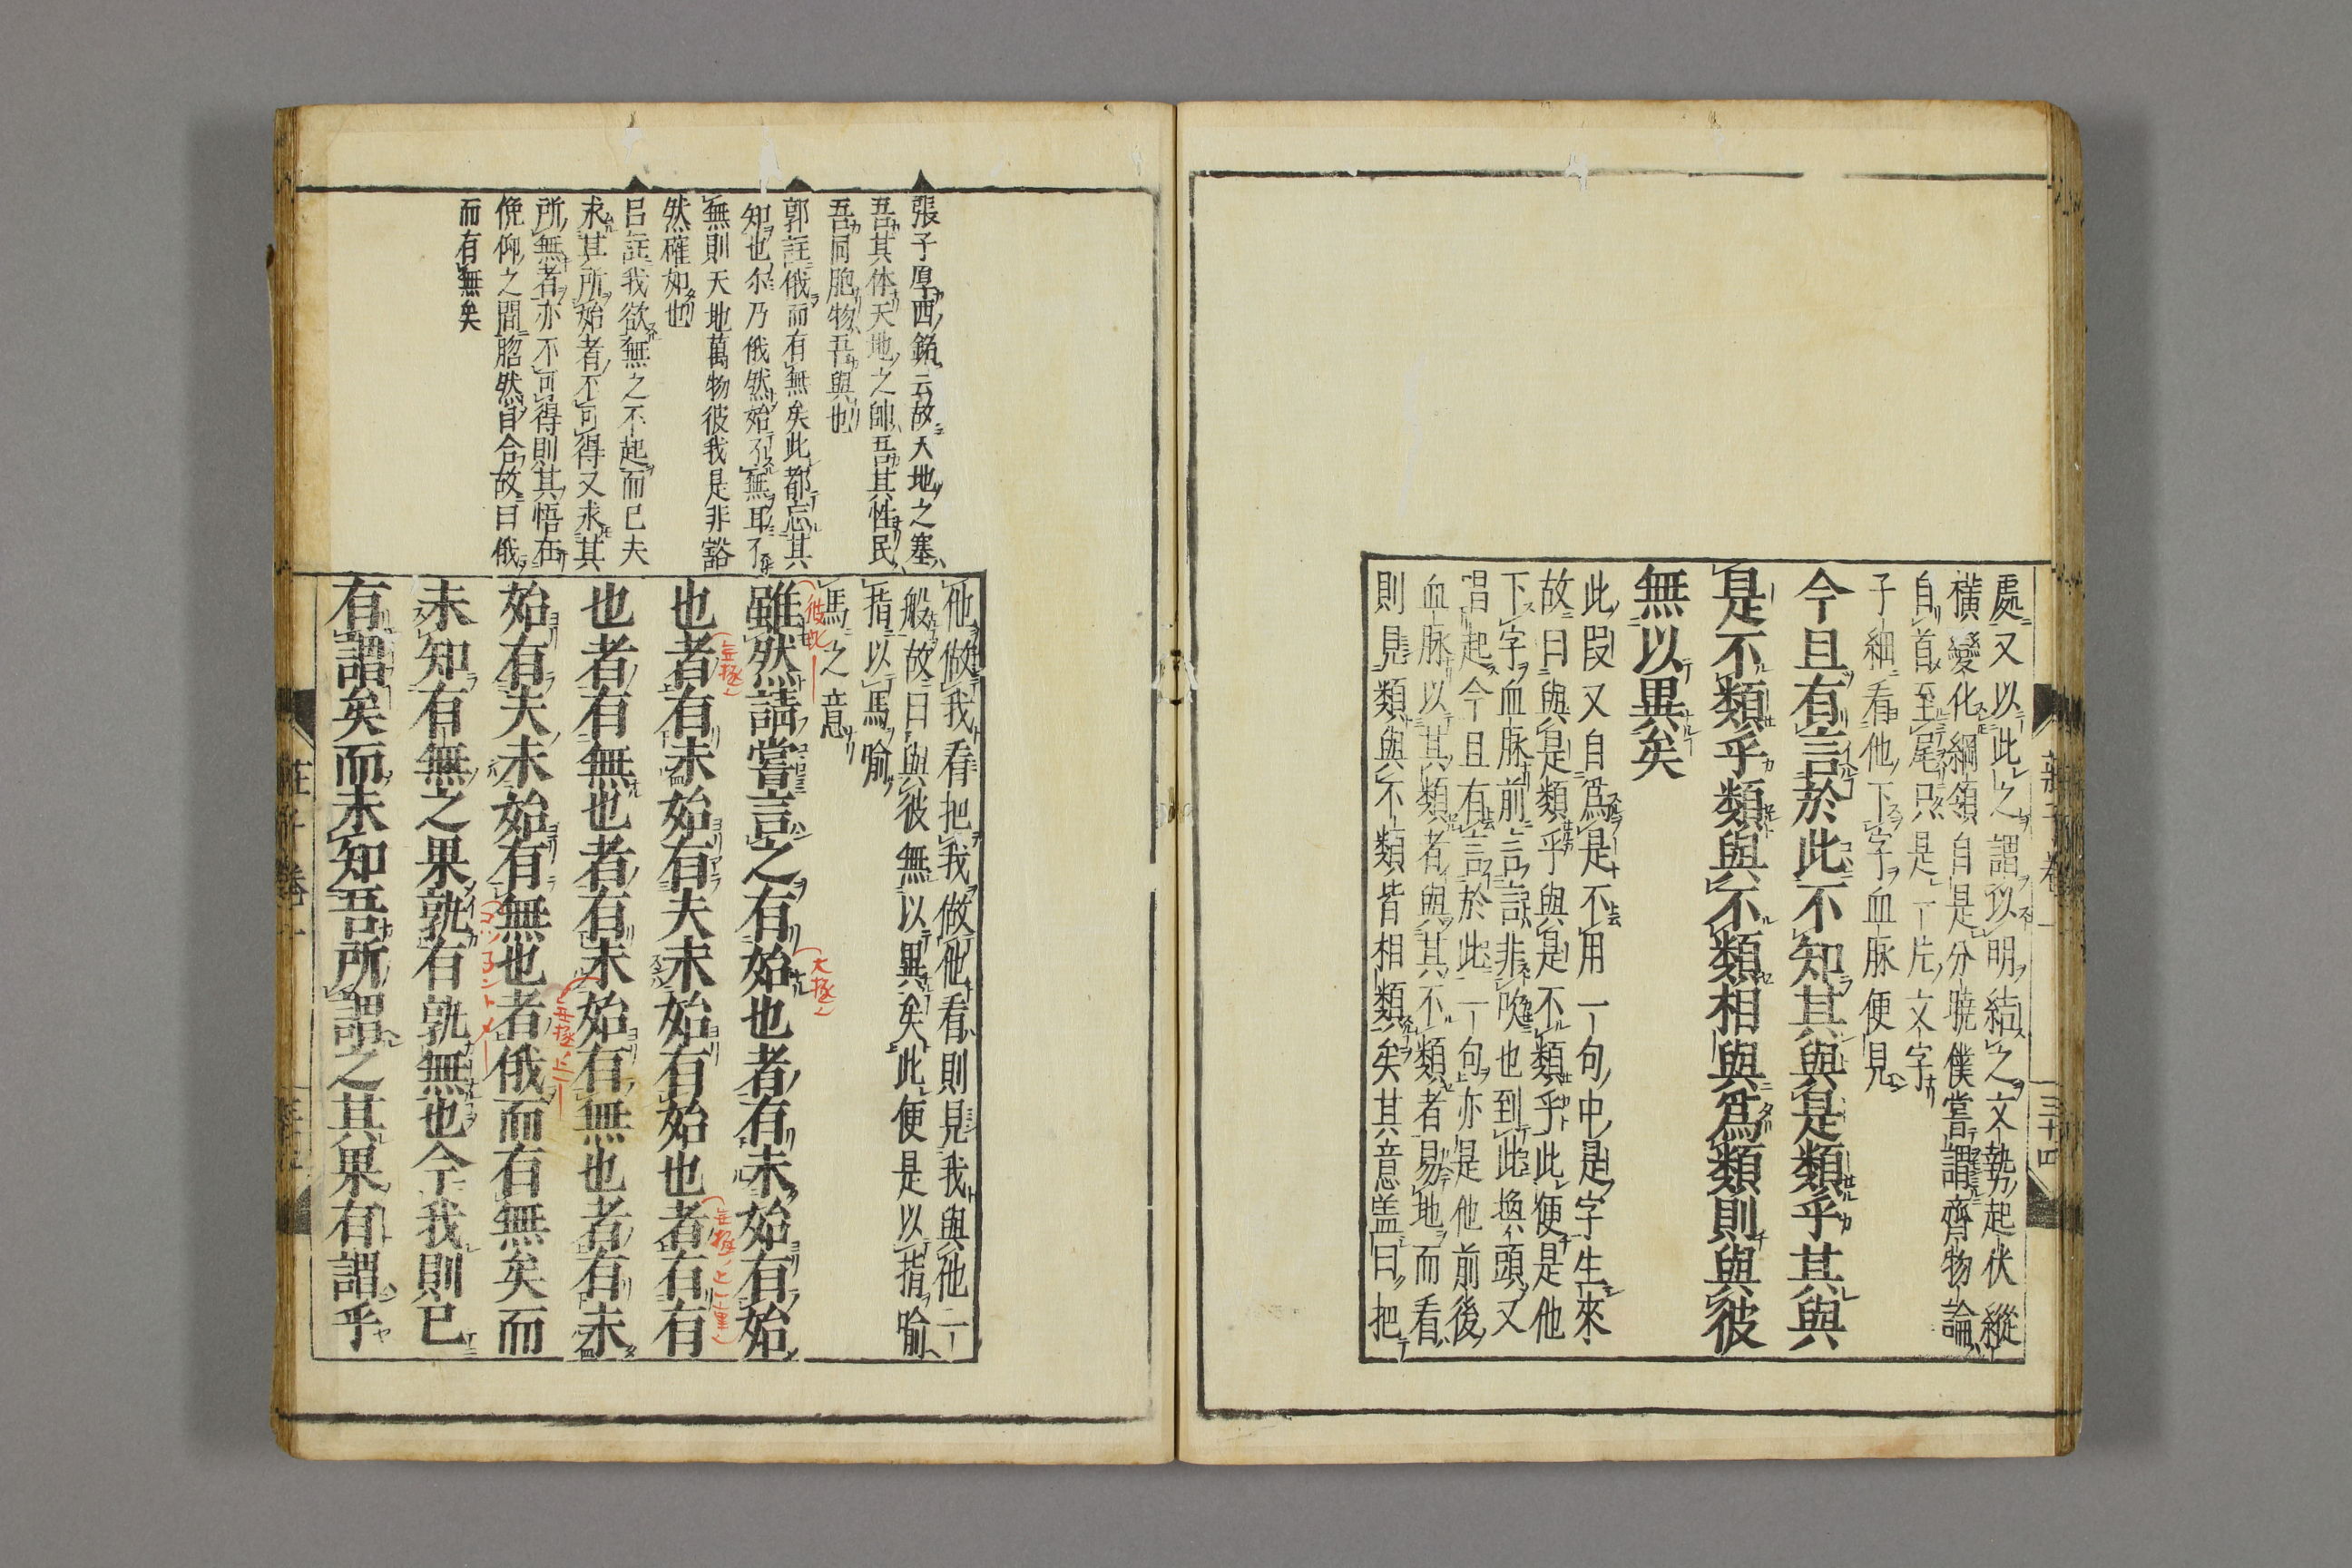 處又以此之謂以明結之文勢起伏縱
橫變化綱領自是分曉僕嘗謂齊物論
自首至尾只是一片文字
子細看他下字血脉便見
今且有言於此不知其與是類乎其與
是不類乎類與不類相與爲類則與彼
無以異矣
此叚又自爲是不用一句中是字生來
故曰與是類乎與是不類乎此便是他
下字血脉前言言非吹也到此換頭又
唱起今且有言於此一句亦是他前後
血脉以其類者與其不類者易地而看
則見類與不類皆相類矣其意盖曰把
莊子卷一
三十四
張子厚西銘云故天地之塞
吾其体天地之帥吾其性民
吾同胞物吾與也
郭註俄而有無矣此都忘其
知也尓乃俄然始了無耳了
無則天地萬物彼我是非豁
然確如也
呂註我欲無之不起而已夫
求其所始者不可得又求其
所無者亦不可得則其悟在
俛仰之間脗然自合故曰俄
而有無矣
他做我看把我做他看則見我與他一
般故曰與彼無以異矣此便是以指喻
指以馬喻
馬之意
雖然請嘗言之有始也者有未始有始
也者有未始有夫未始有始也者有有
也者有無也者有未始有無也者有未
始有夫未始有無也者俄而有無矣而
未知有無之果孰有孰無也今我則已
有謂矣而未知吾所謂之其果有謂乎
彼此
太極
無極
無極
無極
莊子卷一